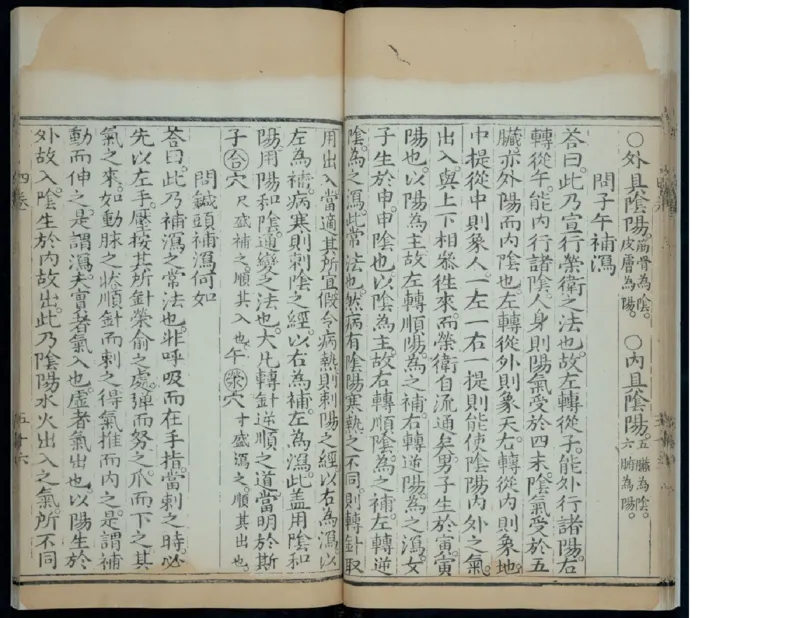 ○外具陰陽筋骨為陰。皮膚為陽。○內具陰陽。五臟為陰。六腑為陽。
問子午補瀉
荅曰。此乃宣行榮衛之法也。故左轉從子。能外行諸陽。右
轉從午。能內行諸陰。人身則陽氣受於四末。陰氣受於五
臟。亦外陽而內陰也。左轉從外則象天。右轉從內則象地。
中提從中則象人。一左一右一提。則能使陰陽內外之氣。
出入與上下相參徃來。而榮衛自流通矣。男子生於寅。寅
陽也。以陽為主。故左轉順陽。為之補。右轉逆陽。為之瀉。女
子生於申。申陰也。以陰為主。故右轉順陰。為之補。左轉逆
陰。為之瀉。此常法也。然病有陰陽寒熱之不同。則轉針取
用出入。當適其所宜。假令病熱。則刺陽之經。以右為瀉。以
左為補。病寒則刺陰之經。以右為補。左為瀉。此盖用陰和
陽。用陽和陰。通變之法也。大凡轉針逆順之道。當明於斯
子合穴尺盛補之。順其入也。午榮穴寸盛瀉之。順其出也。
問鍼頭補瀉何如
荅曰。此乃補瀉之常法也。非呼吸而在手指。當刺之時。必
先以左手。壓按其所針榮俞之處。彈而努之。爪而下之。其
氣之來。如動脉之狀。順針而刺之。得氣推而內之。是謂補
動而伸之。是謂瀉。夫實者氣入也。虛者氣出也。以陽生於
外故入。陰生於內故出。此乃陰陽水火出入之氣。所不同
四卷
五十六